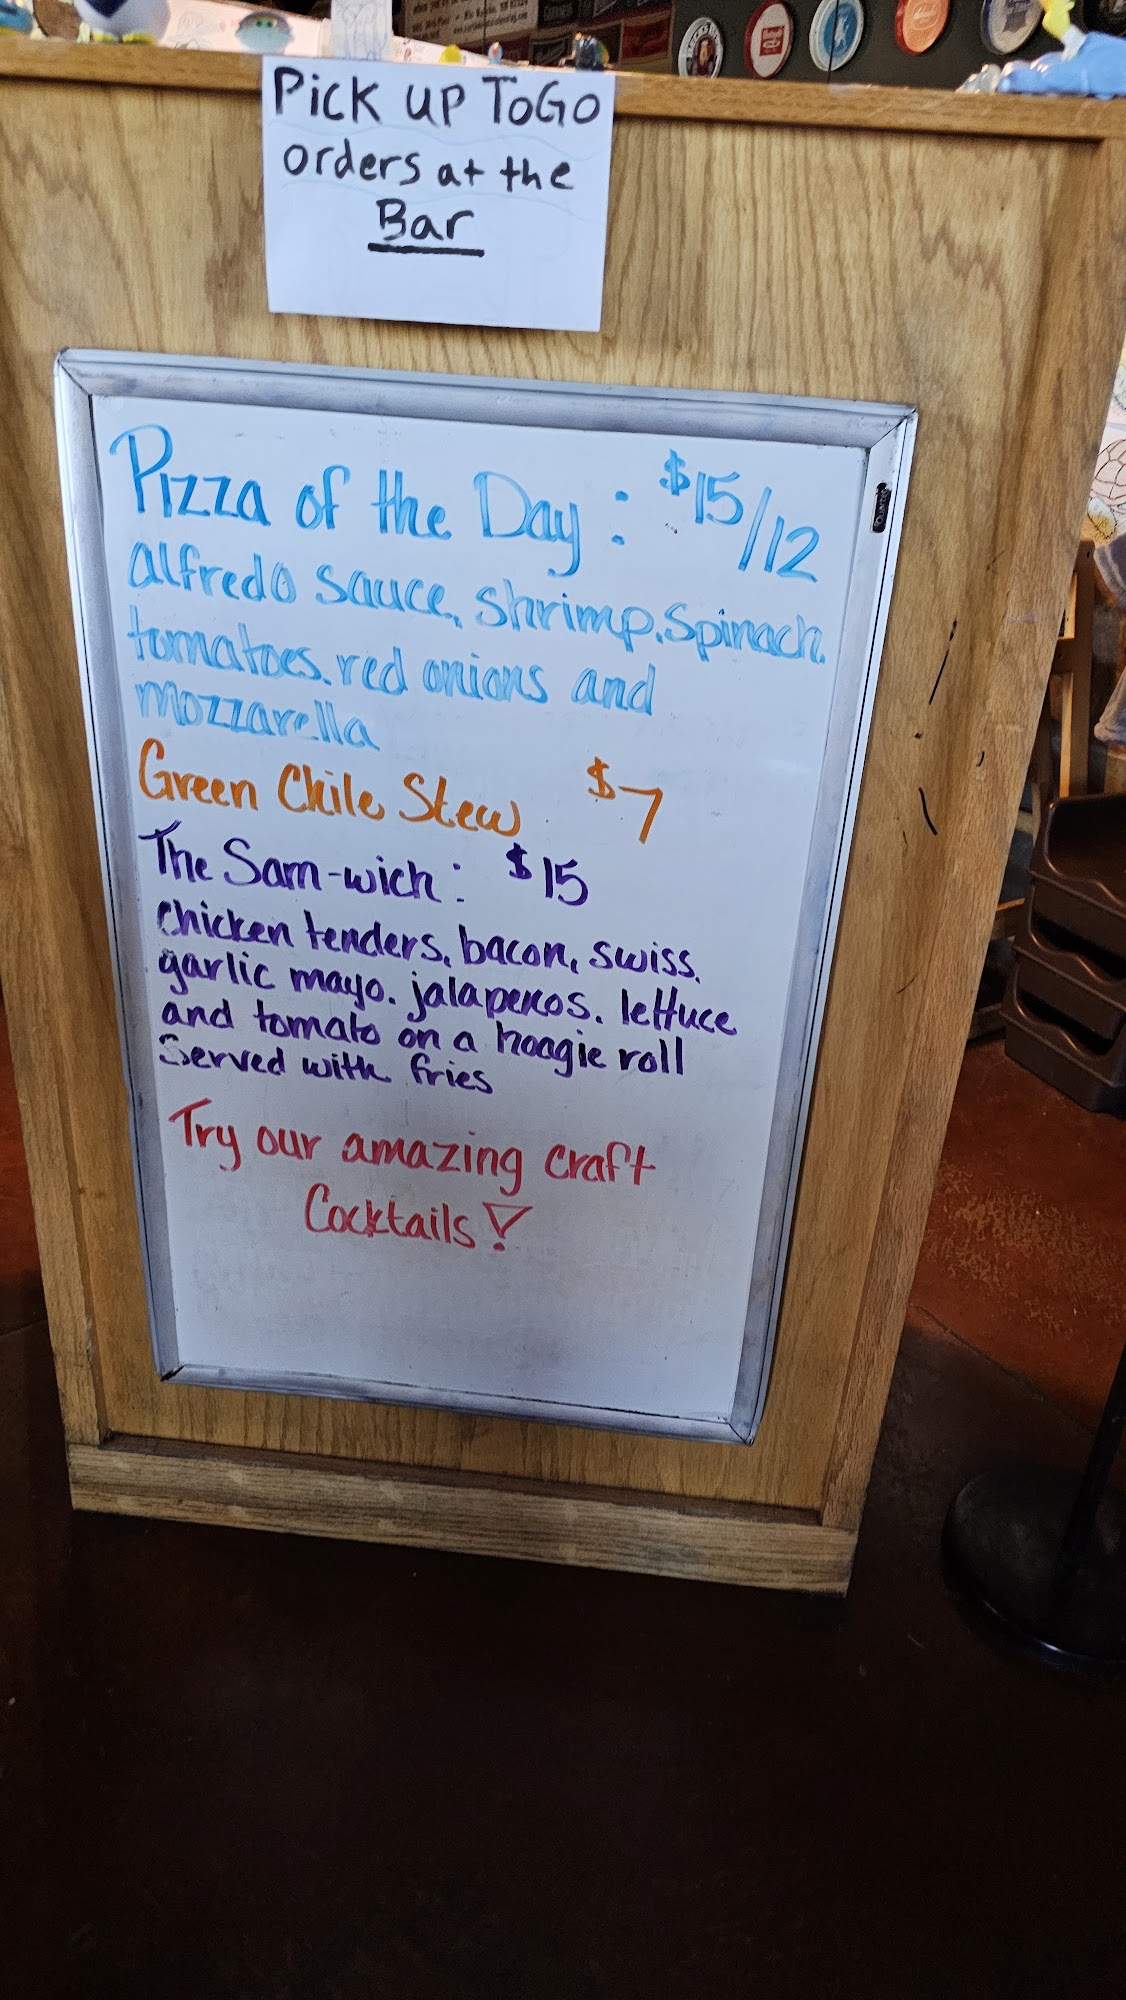 Pick up ToGo
orders at the
Bar
Pizza of the Day: $15/12
alfredo sauce, shrimp, spinach,
tomatoes, red onions and
mozzarella
Green Chile Stew $7
The Sam-wich: $15
chicken tenders, bacon, swiss,
garlic mayo, jalapenos, lettuce
and tomato on a hoagie roll
Served with fries
Try our amazing craft
Cocktails!